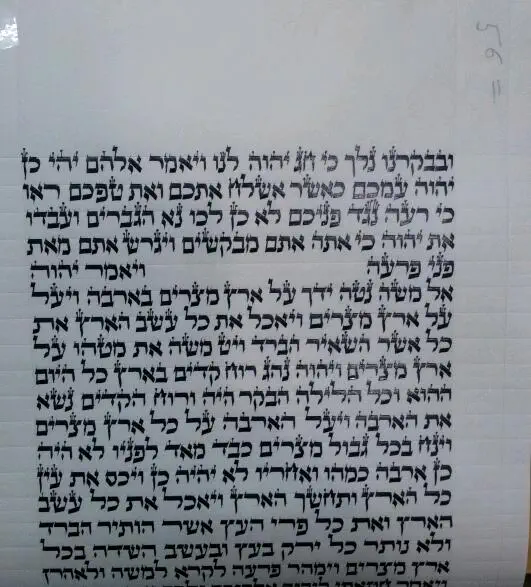 = 95
ובבקרנו נלך כי חג יהוה לנו ויאמר אלהם יהי כן
יהוה עמכם כאשר אשלח אתכם ואת טפכם ראו
כי רעה נגד פניכם לא כן לכו נא הגברים ועבדו
את יהוה כי אתה אתם מבקשים ויגרש אתם מאת
פני פרעה ויאמר יהוה
אל משה נטה ידך על ארץ מצרים בארבה ויעל
על ארץ מצרים ויאכל את כל עשב הארץ את
כל אשר השאיר הברד ויט משה את מטהו על
ארץ מצרים ויהוה נהג רוח קדים בארץ כל היום
ההוא וכל הלילה הבקר היה ורוח הקדים נשא
את הארבה ויעל הארבה על כל ארץ מצרים
וינח בכל גבול מצרים כבד מאד לפניו לא היה
כן ארבה כמהו ואחריו לא יהיה כן ויכס את עין
כל הארץ ותחשך הארץ ויאכל את כל עשב
הארץ ואת כל פרי העץ אשר הותיר הברד
ולא נותר כל ירק בעץ ובעשב השדה בכל
ארץ מצרים וימהר פרעה לקרא למשה ולאהרן